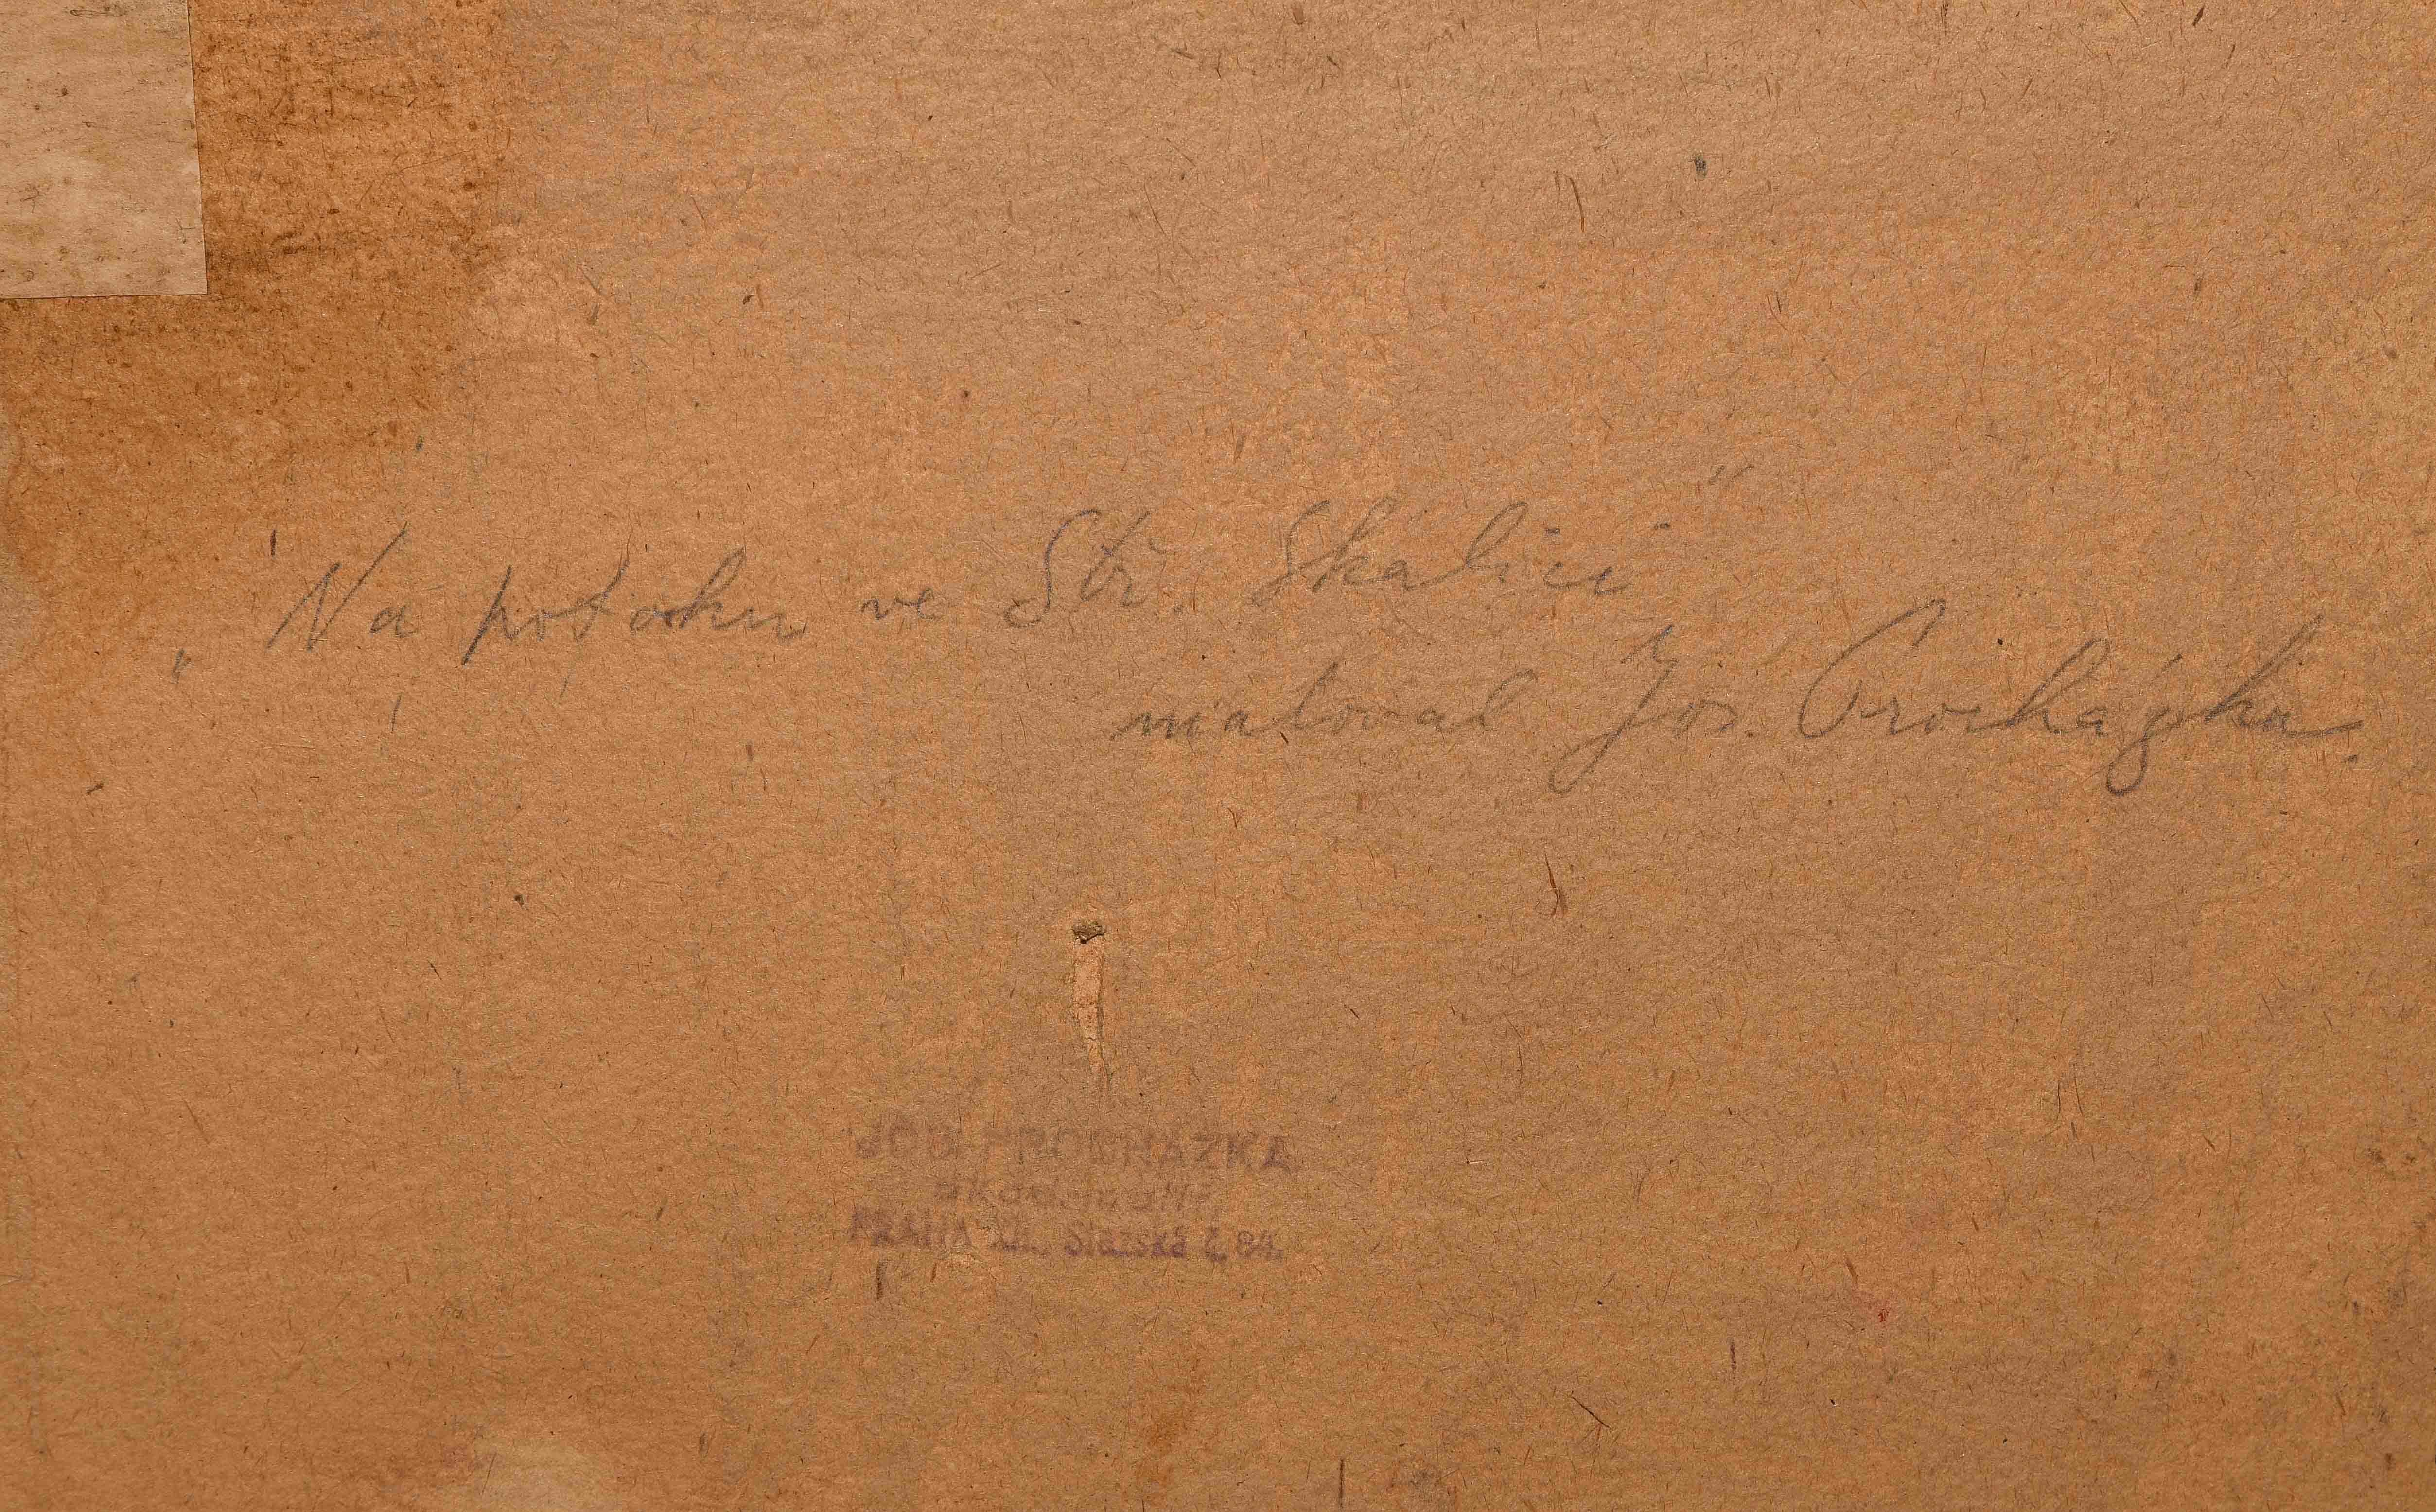 „Na potoku ve Stř. Skalici"
maloval Jos. Procházka.
JOS. PROCHÁZKA
PRAHA XII., Slezská č. 84.